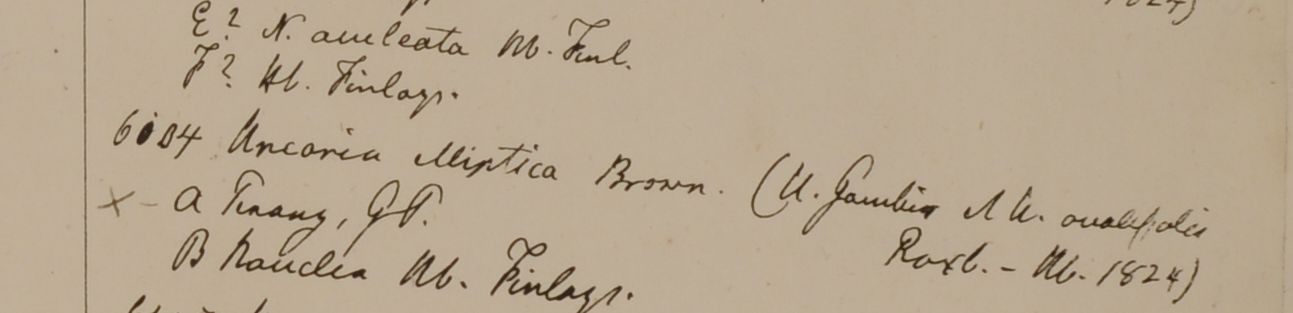 1824)
E? N. aculeata Hb. Finl.
F? Hb. Finlays.
6104 Uncaria elliptica Brown. (U. Gambir & U. ovalifolia
X - A Penang, G.P.
Roxb. - Hb. 1824)
B Nauclea Hb. Finlays.